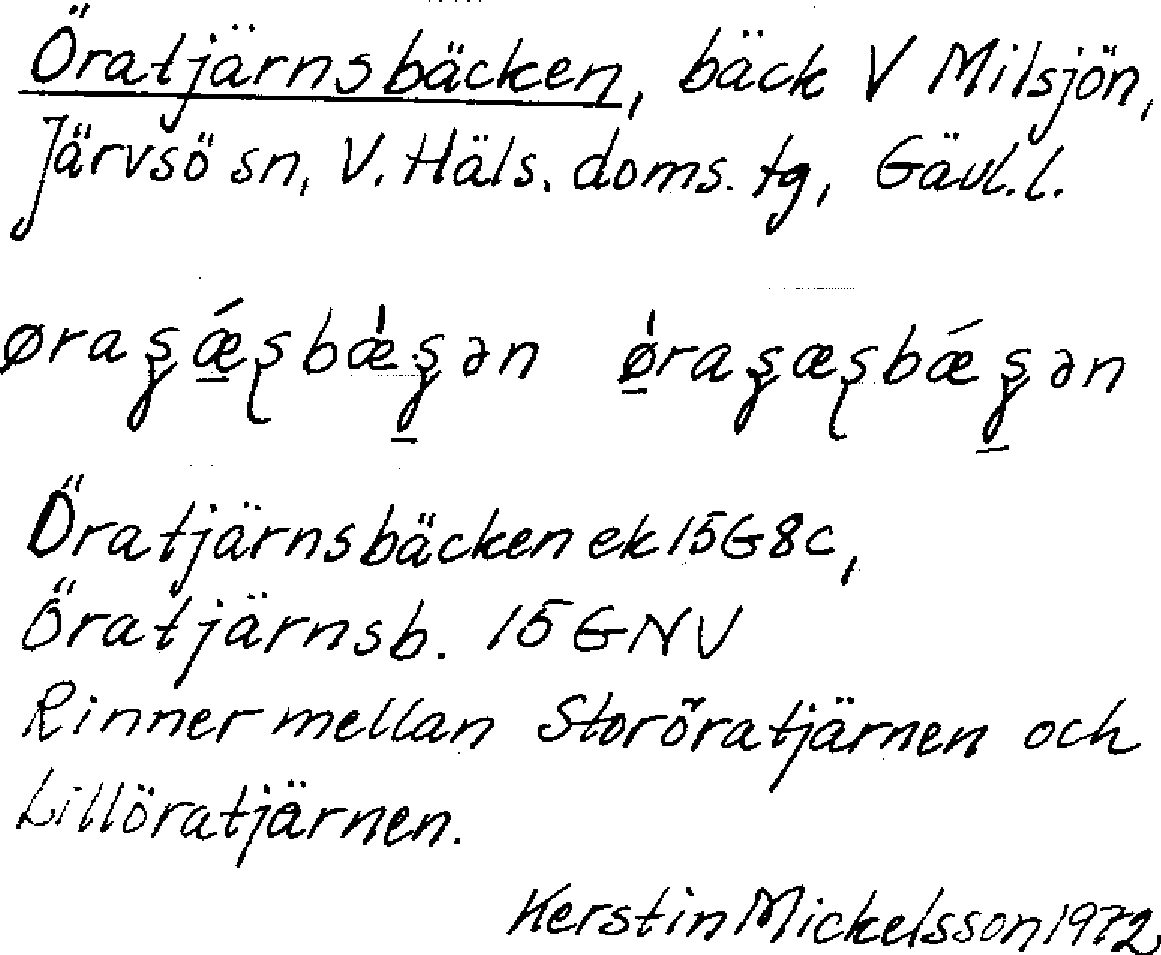 Öratjärnsbäcken, bäck V Milsjön,
Järvsö sn, V. Häls. doms. tg, Gävl. l.
Öratjärnsbäcken ek 15G8c,
Öratjärnsb. 15 GNV
Rinner mellan Storöratjärnen och
Lillöratjärnen.
Kerstin Mickelsson 1972